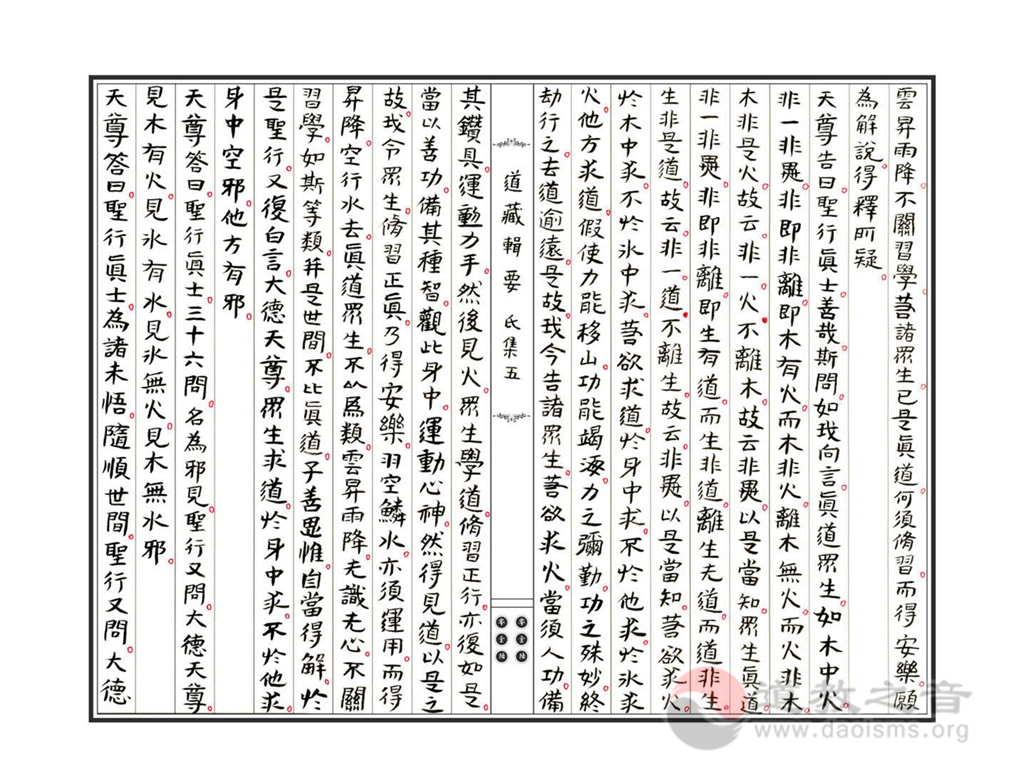 雲昇雨降不關習學若諸眾生已是真道何須脩習而得安樂願
為解說得釋所疑
天尊告曰聖行真士善哉斯問如我向言真道眾生如木中火
非一非異非即非離即木有火而木非火離木無火而火非木
木非是火故云非一火不離木故云非異以是當知眾生真道
非一非異非即非離即生有道而生非道離生无道而道非生
生非是道故云非一道不離生故云非異以是當知若欲求火
於木中求不於氷中求若欲求道於身中求不於他求於氷求
火他方求道假使力能移山功能竭海力之彌勤功之殊妙終
劫行之去道逾遠是故我今告諸眾生若欲求火當須人功備
道藏輯要 氏集五
其鑽具運動力手然後見火眾生學道脩習正行亦復如是
當以善功備其種智觀此身中運動心神然得見道以是之
故我令眾生脩習正真乃得安樂羽空鱗水亦須運用而得
昇降空行水去真道眾生不以為類雲昇雨降无識无心不關
習學如斯等類并是世間不比真道子善思惟自當得解於
是聖行又復白言大德天尊眾生求道於身中求不於他求
身中空邪他方有邪
天尊答曰聖行真士三十六問名為邪見聖行又問大德天尊
見木有火見氷有水見氷無火見木無水邪
天尊答曰聖行真士為諸未悟隨順世間聖行又問大德
道教之音
www.daoisms.org